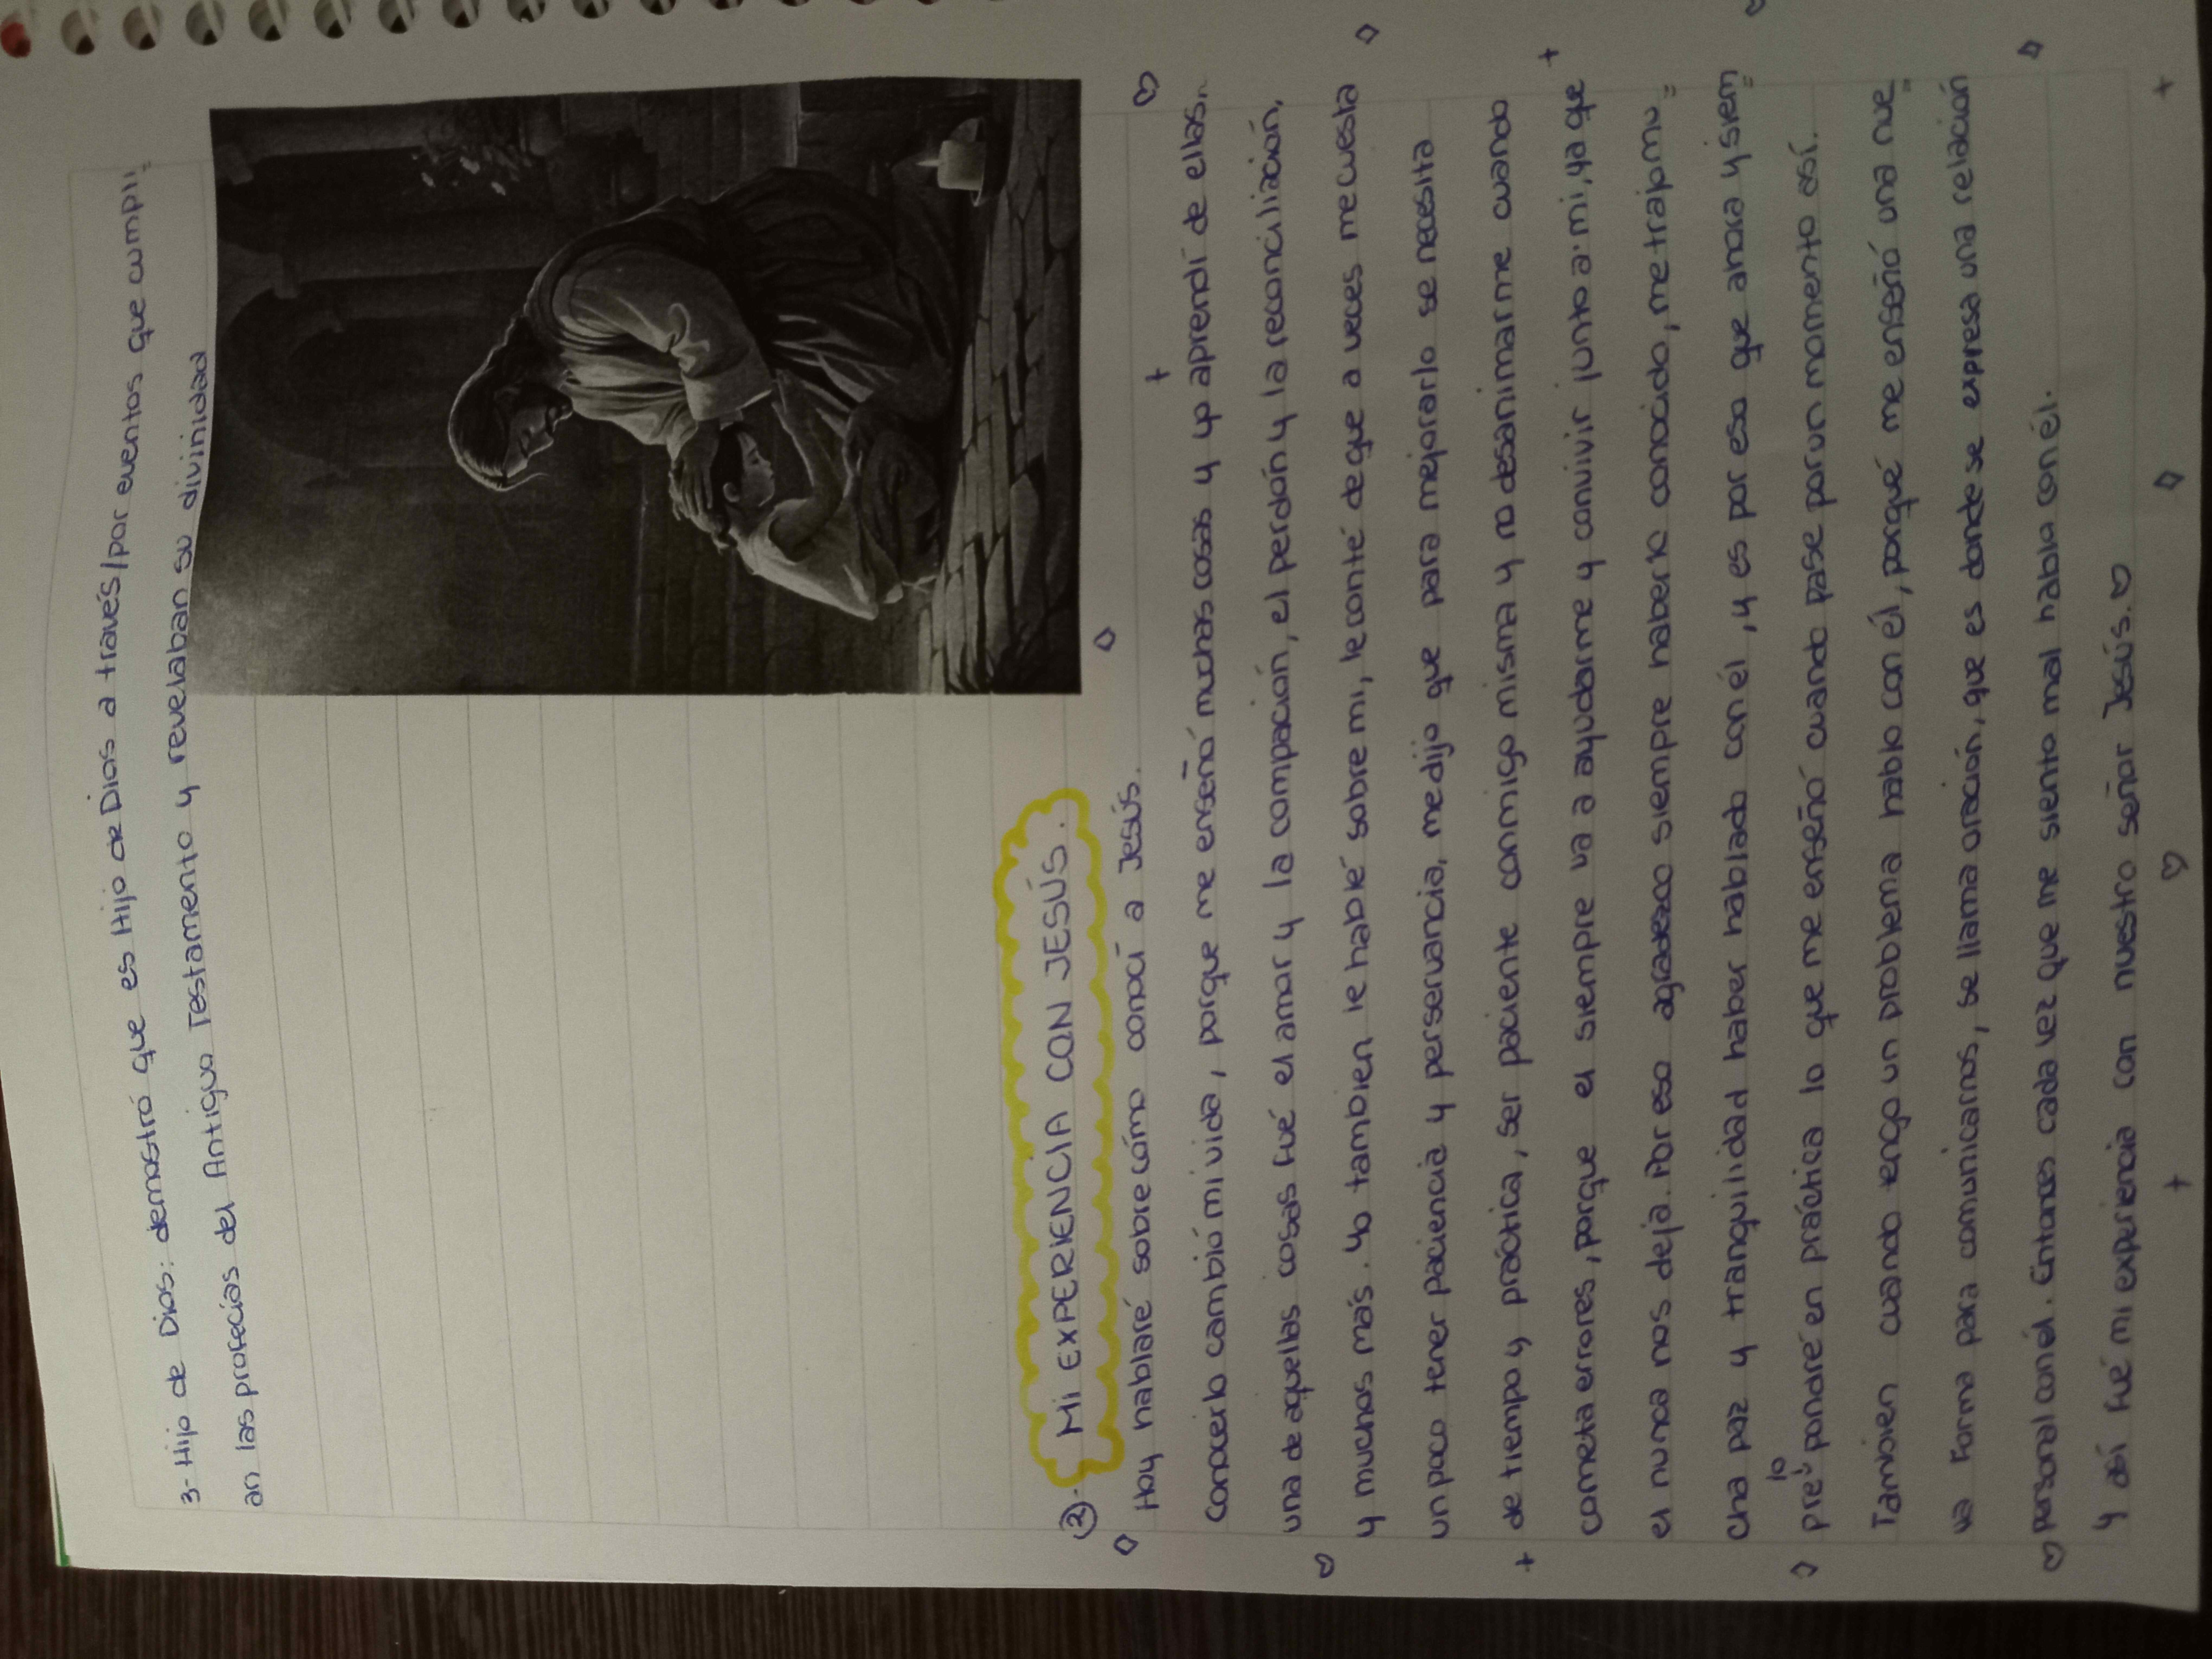 3- Hijo de Dios: demostró que es Hijo de Dios a través/por eventos que cumpli=
an las profecías del Antiguo Testamento y revelaban su divinidad
②- MI EXPERIENCIA CON JESÚS.
Hoy hablaré sobre cómo conocí a Jesús.
Conocerlo cambió mi vida, porque me enseñó muchas cosas y yo aprendí de ellas.
una de aquellas cosas fué el amor y la compación, el perdón y la reconciliación,
y muchos más. Yo tambien le hablé sobre mi, le conté de que a veces me cuesta
un poco tener paciencia y perservancia, me dijo que para mejorarlo se necesita
de tiempo y práctica, ser paciente conmigo misma y no desanimarme cuando
cometa errores, porque el siempre va a ayudarme y convivir junto a mi, ya que
el nunca nos deja. Por eso agradezco siempre haberlo conocido, me trajo mu=
cha paz y tranquilidad haber hablado con él, y es por eso que ahora y siem=
pre lo pondré en práctica lo que me enseñó cuando pase por un momento así.
Tambien cuando tengo un problema hablo con él, porqué me enseñó una nue=
va forma para comunicarnos, se llama oración, que es donde se expresa una relación
personal con él. Entonces cada vez que me siento mal hablo con él.
Y así fué mi experiencia con nuestro señor Jesús. ♡